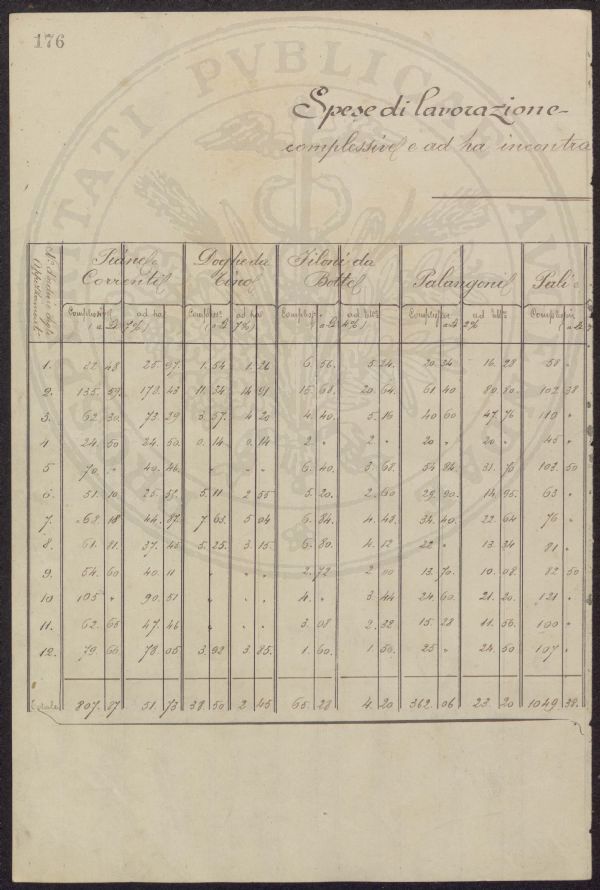 176
PUBLICAE
Spese di lavorazione
complessive e ad ha incontra
Piane Correnti Doghe da Tino Filoni da Botte Palangone Pali
Compless. ad ha Compless. ad ha Compless. ad ha Compless. ad ha Compless.
1. 48 25. 97. 1. 54 1. 26 6. 56. 5. 24. 20. 34 16. 28 58 "
2. 135. 59. 178. 43 11. 34 14. 91 15. 68. 20. 64. 61. 40 80. 80. 102 38
3. 62. 30. 73. 29 3. 57. 4. 20 4. 40. 5. 16 40 60 47. 76 110 "
4 24. 50 24. 50. 0. 14 0. 14 2. " 2. " 20 " 20 " 45 "
5 70. " 40. 46. " " " 6. 40. 3. 68. 54 84 31. 76 103. 50
6. 51. 10 25. 57. 5. 11 2. 55 5. 20. 2. 60 29. 90. 14. 95. 63 "
7. 68. 18 44. 87. 7. 63. 5. 04 6. 84. 4. 48. 34. 40. 22. 64 76 "
8. 61. 81. 37. 45 5. 25. 3. 15. 6. 80. 4. 12 22 " 13. 34 81 "
9. 54. 60 40. 11 " " " " 2. 72 2. 00 13. 70. 10. 08. 82 50
10 105 " 90. 51 " " " " 4. " 3. 44 24. 60. 21. 20. 121 "
11. 62. 65 47. 46 " " " " 3. 08 2. 32 15. 28 11. 56. 100 "
12. 79. 60 78. 05 3. 92 3. 85. 1. 60. 1. 56. 25 " 24. 50 107 "
Totale 807. 87 51. 73 38. 50 2. 45 65. 28 4. 20 362. 06 23. 20 1049 38.